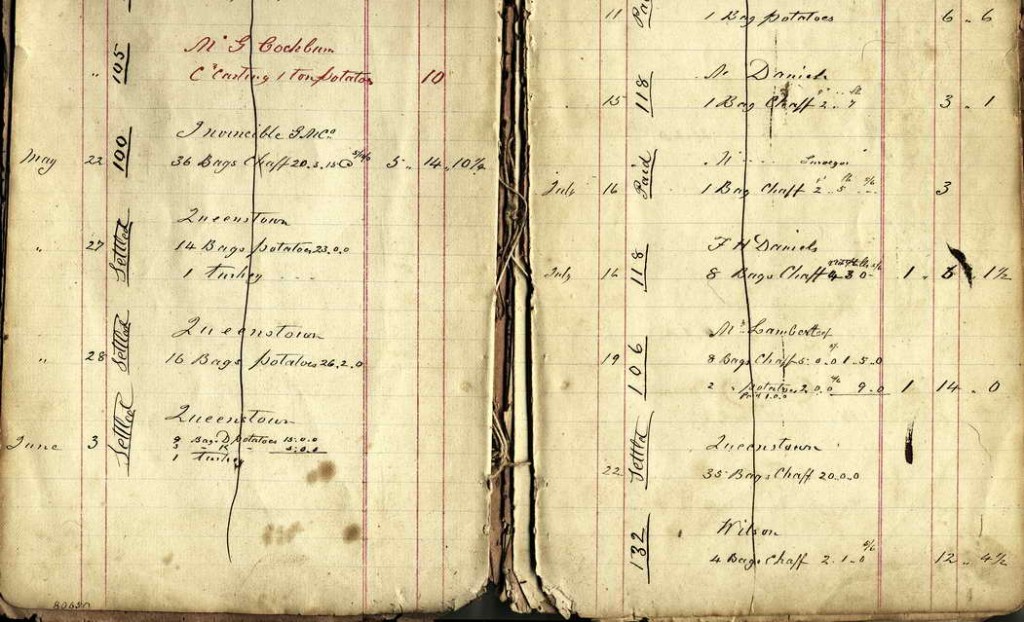 105
Mr G Cockburn
" Cr Carting 1 ton potatoes 10
100
Invincible G M Co
May 22 36 Bags Chaff 20.3.15 @ 5 .. 14 .. 10 1/2
Queenstown
" 27 Settled 14 Bags potatoes 23.0.0
1 Turkey
Queenstown
" 28 Settled 16 Bags potatoes 26.2.0
Queenstown
June 3 Settled Bags D potatoes 15.0.0
3 R " 5.0.0
1 Turkey
11 1 Bag potatoes 6 .. 6
118
Daniels
15 1 Bag Chaff 2 .. 7 3 .. 1
Paid
July 16 1 Bag Chaff 2 .. 5 3
F H Daniels
July 16 118 8 Bags Chaff 1 .. 1 1/2
Mrs Lambert
19 106 8 Bags Chaff 5.0.0 1.5.0
2 " potatoes 2.0.0 9.0 1 14 .. 0
Queenstown
22 Settled 35 Bags Chaff 20.0.0
Wilson
132 4 Bags Chaff 2.1.0 12 .. 4 1/2